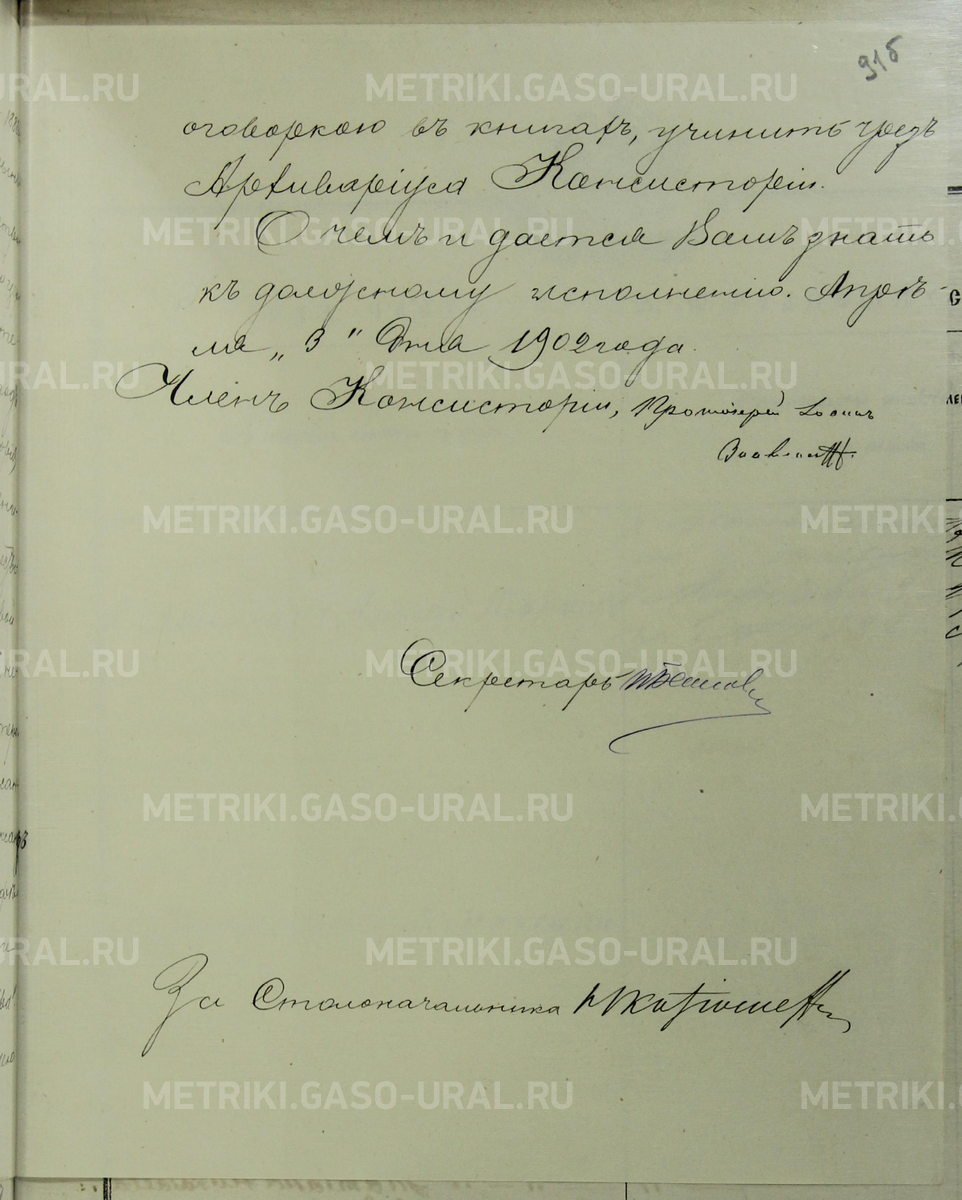 91б
оговоркою въ книгахъ, учинить чрезъ
Архиваріуса Консисторіи.
О чемъ и дается Вамъ знать
къ должному исполненію. Апрѣ-
ля „3" дня 1902 года.
Членъ Консисторіи, Протоіерей Іоаннъ
Секретарь
За Столоначальника
METRIKI.GASO-URAL.RU